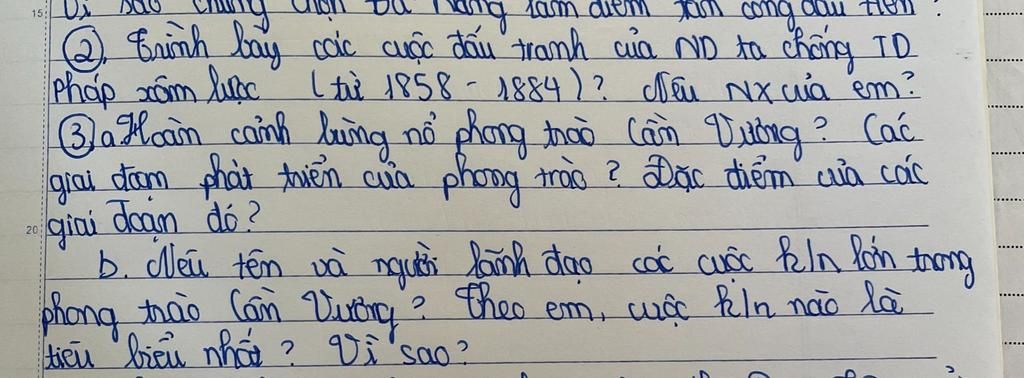 Vì sao chúng chọn Đà Nẵng làm điểm tấn công đầu tiên?
②. Trình bày các cuộc đấu tranh của ND ta chống TD
Pháp xâm lược (từ 1858 - 1884)? Nêu NX của em?
③ a Hoàn cảnh bùng nổ phong trào Cần Vương? Các
giai đoạn phát triển của phong trào? Đặc điểm của các
giai đoạn đó?
b. Nêu tên và người lãnh đạo các cuộc k/n lớn trong
phong trào Cần Vương? Theo em, cuộc k/n nào là
tiêu biểu nhất? Vì sao?
15
20